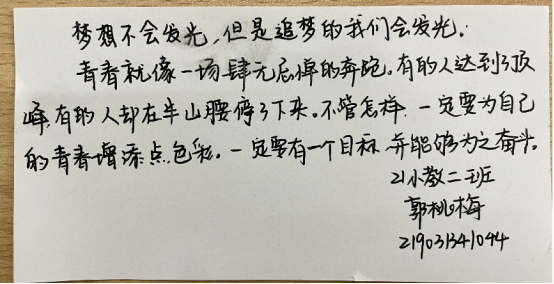 梦想不会发光,但是追梦的我们会发光。
青春就像一场肆无忌惮的奔跑。有的人达到了顶
峰,有的人却在半山腰停了下来。不管怎样,一定要为自己
的青春增添点色彩。一定要有一个目标,并能够为之奋斗。
21小教二班
郭桃梅
219031341044